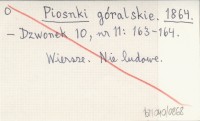 o Piosnki góralskie. 1864.
– Dzwonek 10, nr 11: 163–164.
Wiersze. Nie ludowe.